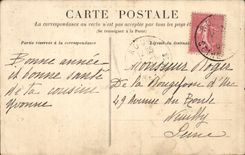 CARTE POSTALE
La correspondance au recto n'est pas acceptée par tous les pays étrangers
(Se renseigner à la Poste)
Partie réservée à la correspondance
Adresse du destinataire
Bonne année
et bonne santé
de la cousine
Yvonne
Monsieur Roger
De la
49 Avenue du Roule
Neuilly
Seine